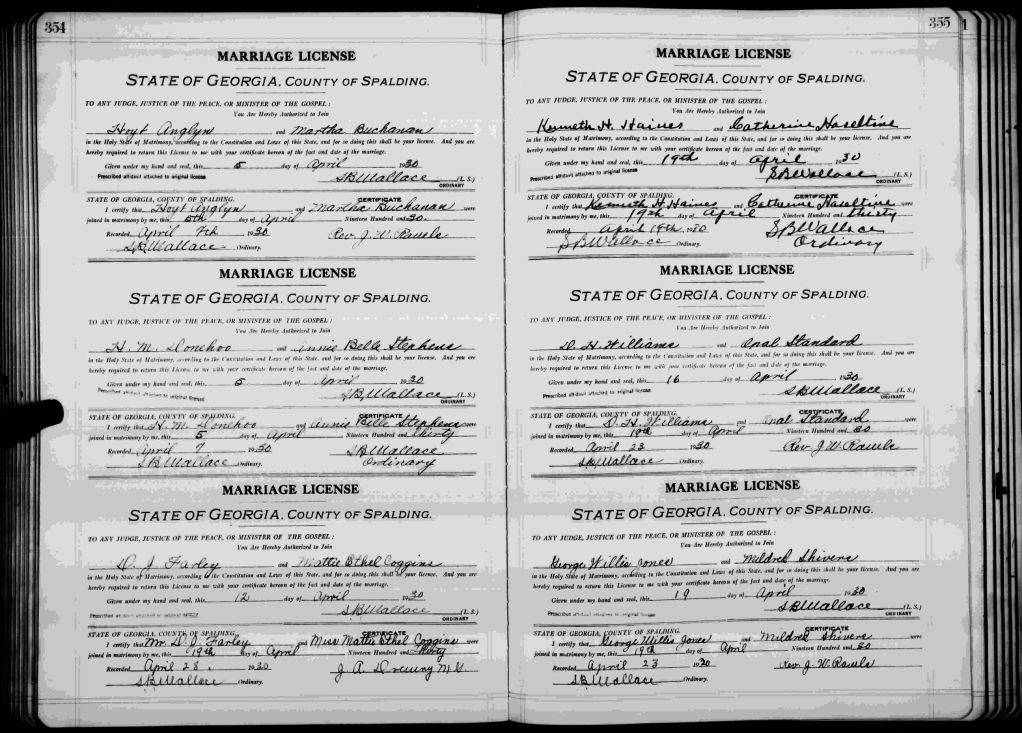 354
MARRIAGE LICENSE
STATE OF GEORGIA, COUNTY OF SPALDING.
TO ANY JUDGE, JUSTICE OF THE PEACE, OR MINISTER OF THE GOSPEL:
You Are Hereby Authorized to Join
Hoyt Anglyn and Martha Buchanan
in the Holy State of Matrimony, according to the Constitution and Laws of this State, and for so doing this shall be your license. And you are
hereby required to return this License to me with your certificate hereon of the fact and date of the marriage.
Given under my hand and seal, this 5 day of April 1930
Prescribed affidavit attached to original license SBWallace (L. S.)
ORDINARY
STATE OF GEORGIA, COUNTY OF SPALDING. CERTIFICATE
I certify that Hoyt Anglyn and Martha Buchanan were
joined in matrimony by me, this 5th day of April Nineteen Hundred and 30.
Recorded April 7th 1930 Rev. J. W. Rawls
SBWallace Ordinary.
MARRIAGE LICENSE
STATE OF GEORGIA, COUNTY OF SPALDING.
TO ANY JUDGE, JUSTICE OF THE PEACE, OR MINISTER OF THE GOSPEL:
You Are Hereby Authorized to Join
H. M. Donehoo and Annie Belle Stephens
in the Holy State of Matrimony, according to the Constitution and Laws of this State, and for so doing this shall be your license. And you are
hereby required to return this License to me with your certificate hereon of the fact and date of the marriage.
Given under my hand and seal, this 5 day of April 1930
Prescribed affidavit attached to original license SBWallace (L. S.)
ORDINARY
STATE OF GEORGIA, COUNTY OF SPALDING. CERTIFICATE
I certify that H. M. Donehoo and Annie Belle Stephens were
joined in matrimony by me, this 5 day of April Nineteen Hundred and thirty
Recorded April 7 1930 SBWallace
SBWallace Ordinary. Ordinary
MARRIAGE LICENSE
STATE OF GEORGIA, COUNTY OF SPALDING.
TO ANY JUDGE, JUSTICE OF THE PEACE, OR MINISTER OF THE GOSPEL:
You Are Hereby Authorized to Join
D. J. Farley and Mattie Ethel Coggins
in the Holy State of Matrimony, according to the Constitution and Laws of this State, and for so doing this shall be your license. And you are
hereby required to return this License to me with your certificate hereon of the fact and date of the marriage.
Given under my hand and seal, this 12 day of April 1930
Prescribed affidavit attached to original license SBWallace (L. S.)
ORDINARY
STATE OF GEORGIA, COUNTY OF SPALDING. CERTIFICATE
I certify that Mr. D. J. Farley and Miss Mattie Ethel Coggins were
joined in matrimony by me, this 19th day of April Nineteen Hundred and Thirty
Recorded April 23 1930 J. A. Drewry M. G.
SBWallace Ordinary.
355
1
MARRIAGE LICENSE
STATE OF GEORGIA, COUNTY OF SPALDING.
TO ANY JUDGE, JUSTICE OF THE PEACE, OR MINISTER OF THE GOSPEL:
You Are Hereby Authorized to Join
Kenneth H. Haines and Catherine Haseltine
in the Holy State of Matrimony, according to the Constitution and Laws of this State, and for so doing this shall be your license. And you are
hereby required to return this License to me with your certificate hereon of the fact and date of the marriage.
Given under my hand and seal, this 19th day of April 1930
Prescribed affidavit attached to original license SBWallace (L. S.)
ORDINARY
STATE OF GEORGIA, COUNTY OF SPALDING. CERTIFICATE
I certify that Kenneth H Haines and Catherine Haseltine were
joined in matrimony by me, this 19th day of April Nineteen Hundred and thirty
Recorded April 19th 1930 SBWallace
SBWallace Ordinary. Ordinary
MARRIAGE LICENSE
STATE OF GEORGIA, COUNTY OF SPALDING.
TO ANY JUDGE, JUSTICE OF THE PEACE, OR MINISTER OF THE GOSPEL:
You Are Hereby Authorized to Join
D. H. Williams and Opal Standard
in the Holy State of Matrimony, according to the Constitution and Laws of this State, and for so doing this shall be your license. And you are
hereby required to return this License to me with your certificate hereon of the fact and date of the marriage.
Given under my hand and seal, this 16 day of April 1930
Prescribed affidavit attached to original license SBWallace (L. S.)
ORDINARY
STATE OF GEORGIA, COUNTY OF SPALDING. CERTIFICATE
I certify that D. H. Williams and Opal Standard were
joined in matrimony by me, this 19th day of April Nineteen Hundred and 30
Recorded April 23 1930 Rev J. W. Rawls
SBWallace Ordinary.
MARRIAGE LICENSE
STATE OF GEORGIA, COUNTY OF SPALDING.
TO ANY JUDGE, JUSTICE OF THE PEACE, OR MINISTER OF THE GOSPEL:
You Are Hereby Authorized to Join
George Willis Jones and Mildred Shivers
in the Holy State of Matrimony, according to the Constitution and Laws of this State, and for so doing this shall be your license. And you are
hereby required to return this License to me with your certificate hereon of the fact and date of the marriage.
Given under my hand and seal, this 19 day of April 1930
Prescribed affidavit attached to original license SBWallace (L. S.)
ORDINARY
STATE OF GEORGIA, COUNTY OF SPALDING. CERTIFICATE
I certify that George Willis Jones and Mildred Shivers were
joined in matrimony by me, this 19th day of April Nineteen Hundred and 30
Recorded April 23 1930 Rev. J. W. Rawls
SBWallace Ordinary.